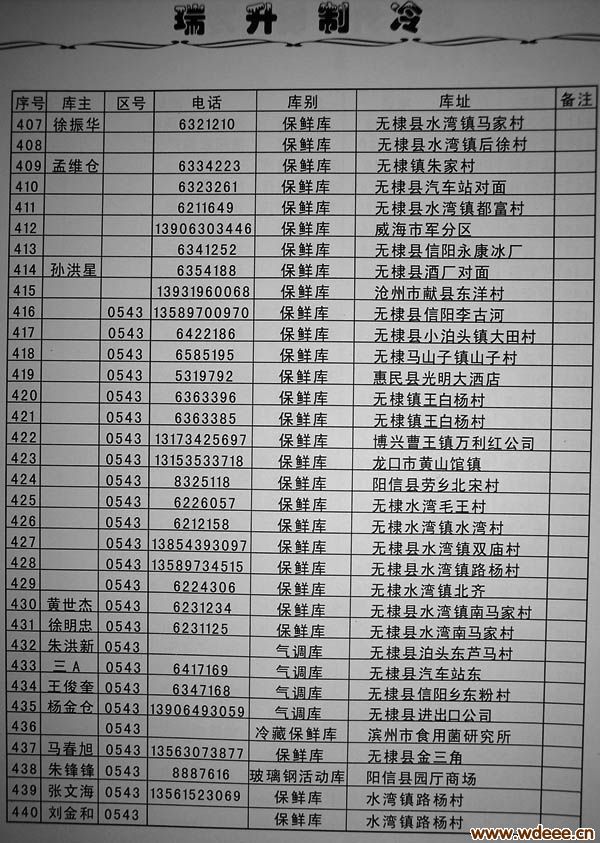 瑞升制冷
序号 库主 区号 电话 库别 库址 备注
407 徐振华 6321210 保鲜库 无棣县水湾镇马家村
408 保鲜库 无棣县水湾镇后徐村
409 孟维仓 6334223 保鲜库 无棣镇朱家村
410 6323261 保鲜库 无棣县汽车站对面
411 6211649 保鲜库 无棣县水湾镇都富村
412 13906303446 保鲜库 威海市军分区
413 6341252 保鲜库 无棣县信阳永康冰厂
414 孙洪星 6354188 保鲜库 无棣县酒厂对面
415 13931960068 保鲜库 沧州市献县东洋村
416 0543 13589700970 保鲜库 无棣县信阳李古河
417 0543 6422186 保鲜库 无棣县小泊头镇大田村
418 0543 6585195 保鲜库 无棣马山子镇山子村
419 0543 5319792 保鲜库 惠民县光明大洒店
420 0543 6363396 保鲜库 无棣镇王白杨村
421 0543 6363385 保鲜库 无棣镇王白杨村
422 0543 13173425697 保鲜库 博兴曹王镇万利红公司
423 0543 13153533718 保鲜库 龙口市黄山馆镇
424 0543 8325118 保鲜库 阳信县劳乡北宋村
425 0543 6226057 保鲜库 无棣水湾毛王村
426 0543 6212158 保鲜库 无棣水湾镇水湾村
427 0543 13854393097 保鲜库 无棣县水湾镇双庙村
428 0543 13589734515 保鲜库 无棣县水湾镇路杨村
429 0543 6224306 保鲜库 无棣水湾镇北齐
430 黄世杰 0543 6231234 保鲜库 无棣县水湾镇南马家村
431 徐明忠 0543 6231125 保鲜库 无棣县水湾南马家村
432 朱洪新 0543 气调库 无棣县泊头东芦马村
433 三A 0543 6417169 气调库 无棣县汽车站东
434 王俊奎 0543 6347168 气调库 无棣县信阳乡东粉村
435 杨金仓 0543 13906493059 气调库 无棣县进出口公司
436 0543 冷藏保鲜库 滨州市食用菌研究所
437 马春旭 0543 13563073877 保鲜库 无棣县金三角
438 朱锋锋 0543 8887616 玻璃钢活动库 阳信县园厅商场
439 张文海 0543 13561523069 保鲜库 水湾镇路杨村
440 刘金和 0543 保鲜库 水湾镇路杨村
www.wdeee.cn